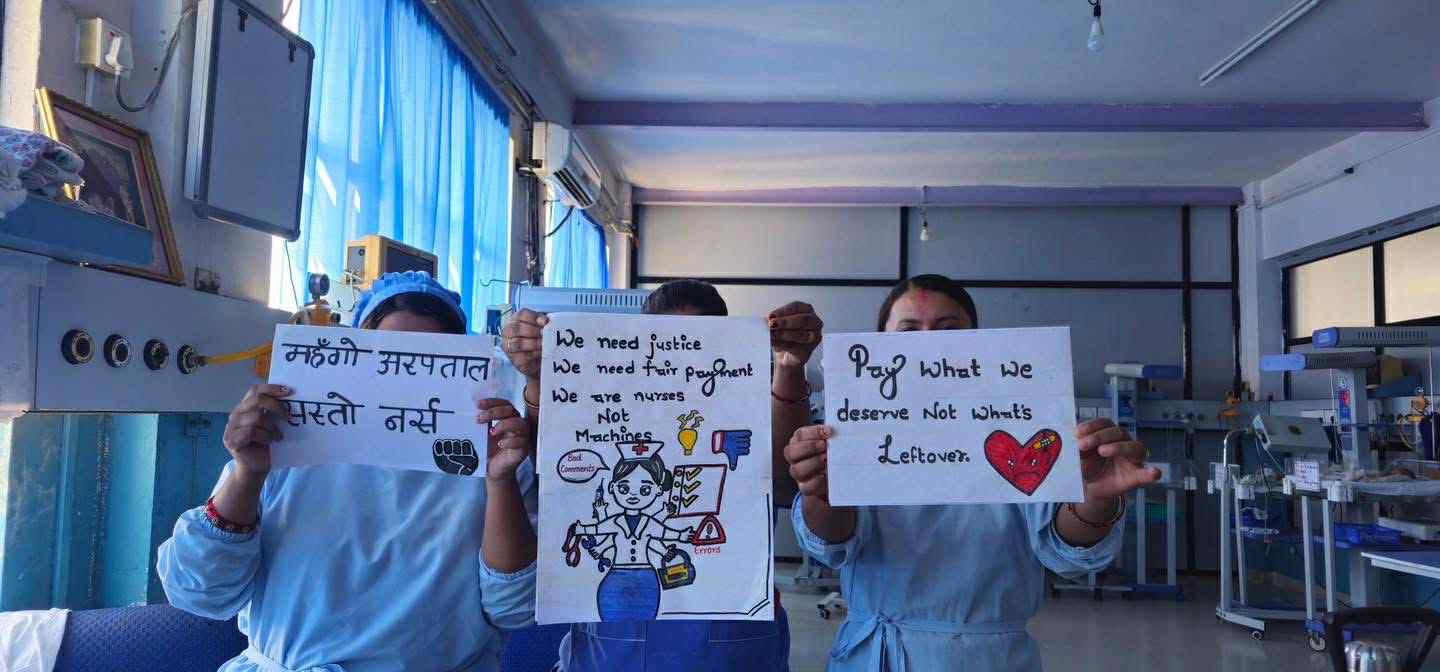 महँगो अस्पताल
सस्तो नर्स
We need justice
We need fair payment
We are nurses
Not
Machines
Bad
Comments
Errors
Pay what we
deserve Not what's
Leftover.